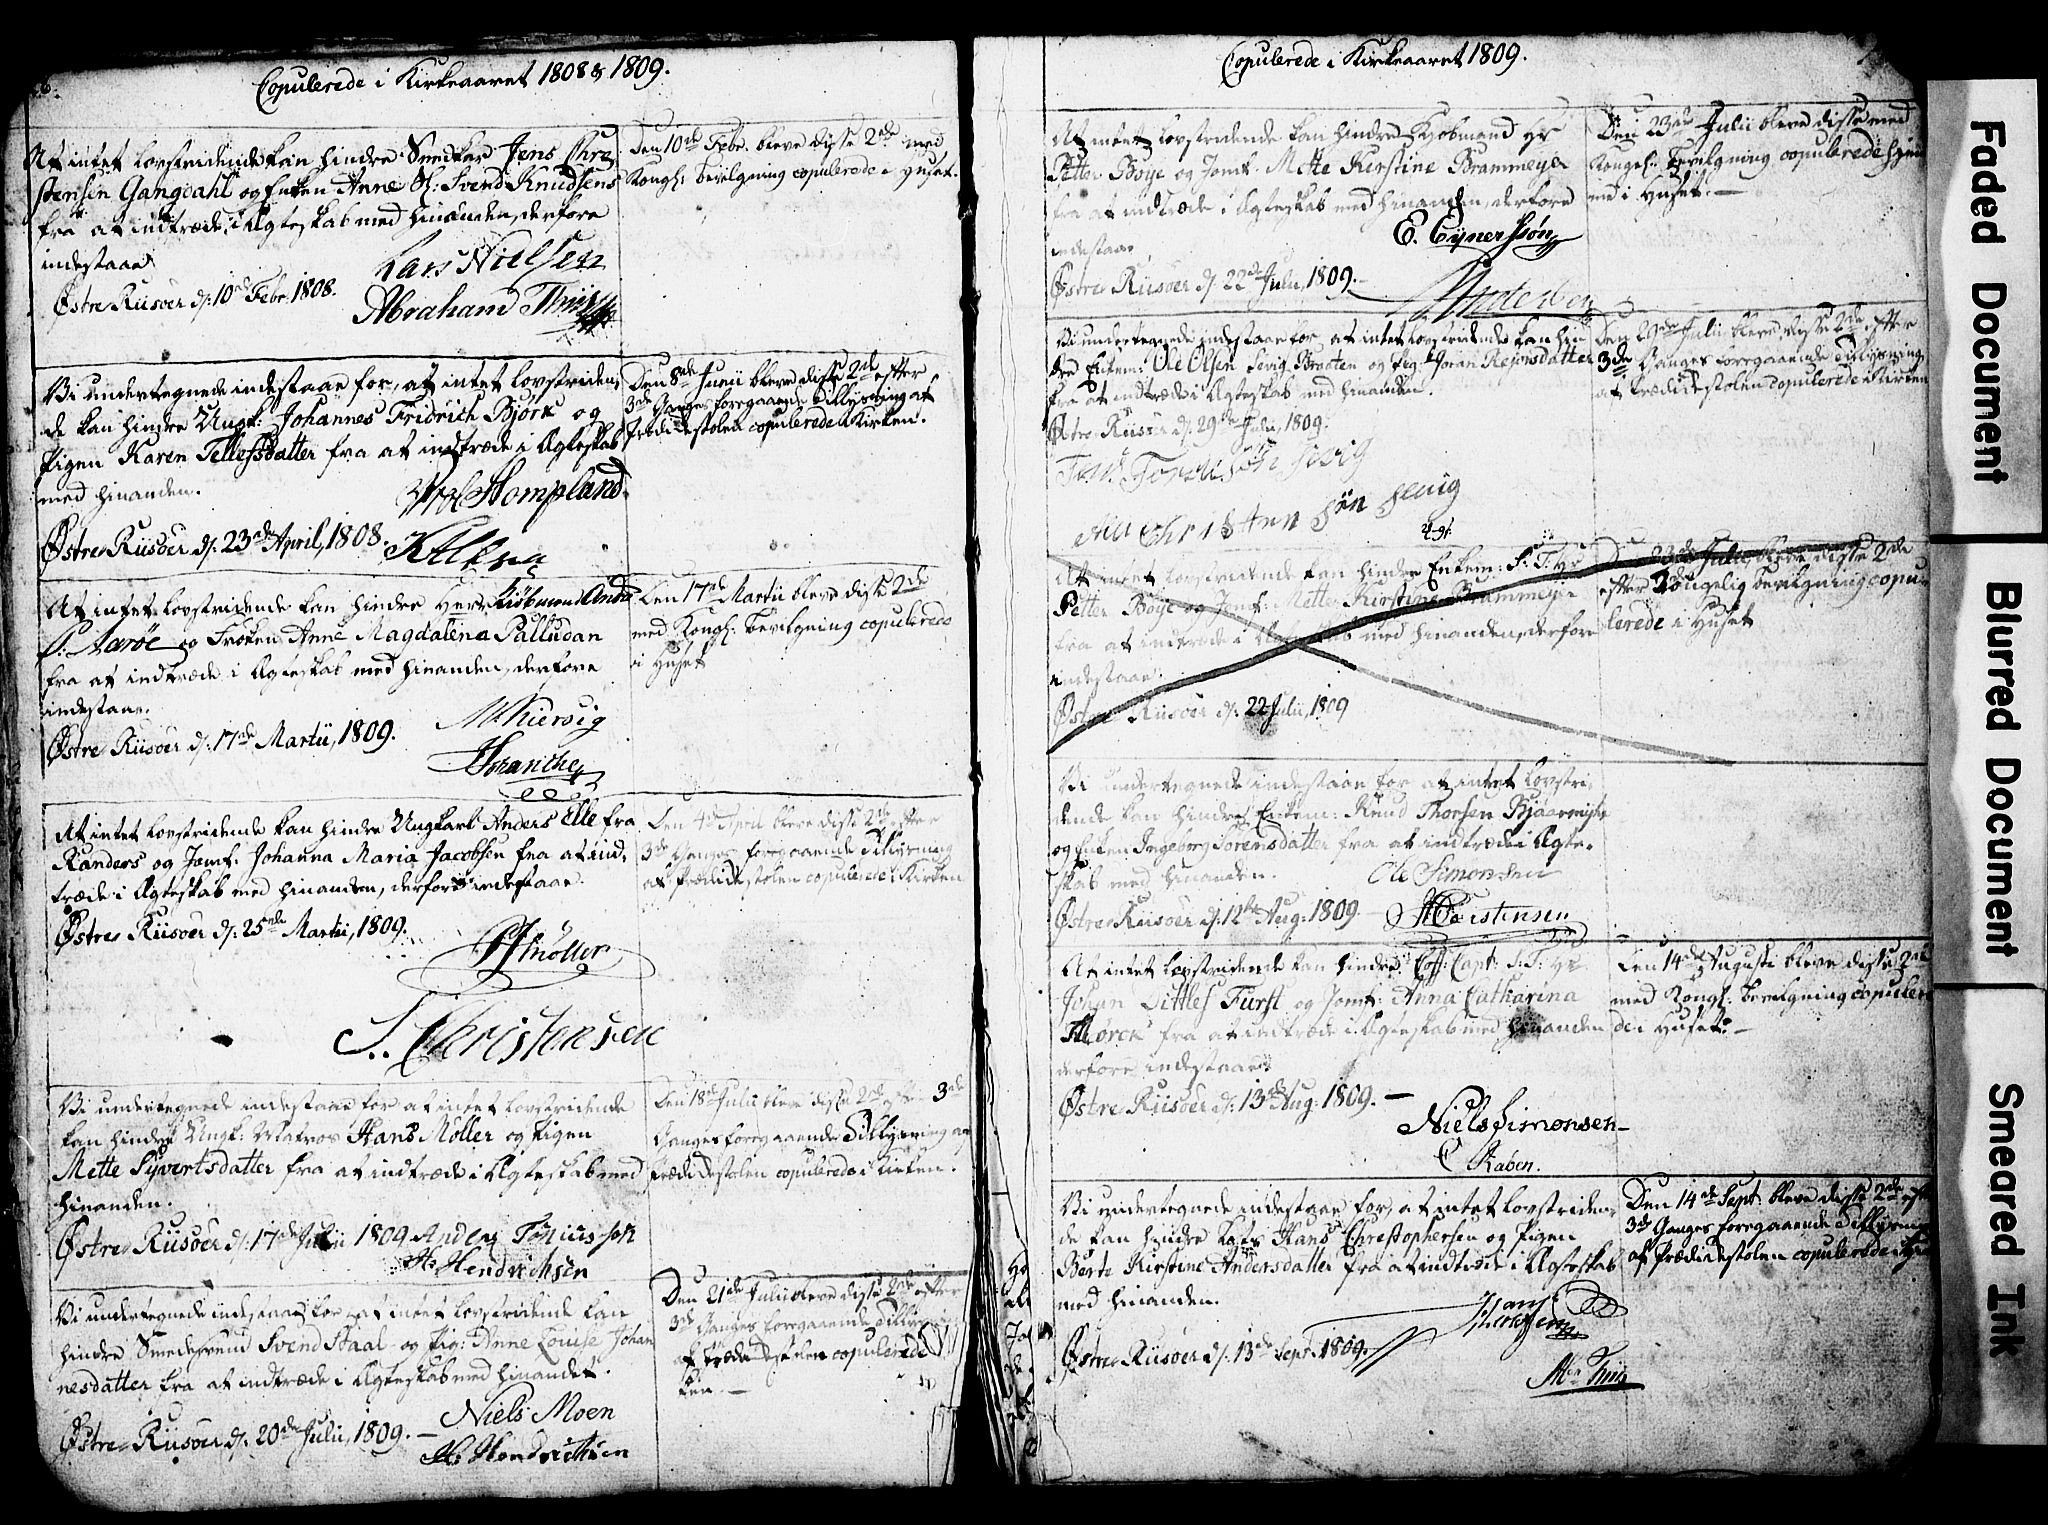 Copulerede i Kirkeaaret 1808 & 1809.
At intet lovstridende kan hindre Smedkar Jens Chri
stensen Gangdahl og Enken Anne Sl. Svend Knudsens
fra at indtræde i Ægteskab med hinanden, derfore
indestaae
Østre Riisøer d: 10de Febr. 1808.
Lars Nielsen
Abraham
Den 10de Febr. bleve disse 2de med
Kongl: Bevilgning copulerede i Huset.
Vi undertegnede indestaae for, at intet lovstriden,
de kan hindre Ungk: Johannes Fridrich Bjørk og
Pigen Karen Tellefsdatter fra at indtræde i Ægteskab
med hinanden.
Østre Riisøer d: 23de April, 1808.
Stompland
Den 8de Junii bleve disse 2de efter
3de Ganges foregaaende Tillysning af
Prædikestolen copulerede i Kirken.
At intet lovstridende kan hindre Herr Kiøbmand
og Frøken Anne Magdalena Palludan
fra at indtræde i Ægteskab med hinanden, derfore
indestaae.
Østre Riisøer d: 17de Martii, 1809.
Den 17de Martii bleve disse 2de
med Kongl: Bevilgning copulerede
i Huset
At intet lovstridende kan hindre Ungkarl Anders Elle fra
Randers og Jomf: Johanna Maria Jacobsen fra at ind,
træde i Ægteskab med hinanden, derfor indestaae.
Østre Riisøer d: 25de Martii, 1809.
Møller
S. Christensen
Den 4de April bleve disse 2de efter
3de Ganges foregaaende Tillysning
af Prædikestolen copulerede i Kirken
Vi undertegnede indestaae for at intet lovstridende
kan hindre Ungk: Matros Hans Møller og Pigen
Mette Syvertsdatter fra at indtræde i Ægteskab med
hinanden.
Østre Riisøer d: 17de Julii 1809
H. Hendrichsen
Den 18de Julii bleve disse 2de efter 3de
Ganges foregaaende Tillysning af
Prædikestolen copulerede i Kirken.
Vi undertegnede indestaae for at intet lovstridende kan
hindre Smedesvend Svend Staal og Pig: Anne Louise Johan
nesdatter fra at indtræde i Ægteskab med hinanden.
Østre Riisøer d: 20de Julii, 1809.
Niels Moen
H. Hendrichsen
Den 21de Julii bleve disse 2de efter
3de Ganges foregaaende
af Prædikestolen copulerede
ken.
Copulerede i Kirkeaaret 1809.
At intet lovstridende kan hindre Kjøbmand Hr
Petter Boye og Jomf. Mette Kirstine Brammeyer
fra at indtræde i Ægteskab med hinanden, derfore
indestaae
Østre Riisøer d: 22de Julii, 1809.
E. Eynersson
Den 23de Julii bleve disse med
Kongel: Bevilgning copulerede
i Huset.
Vi undertegnede indestaae for, at intet lovstridende kan hin
dre Enkem: Ole Olsen Sevig Braaten og Pig:
fra at indtræde i Ægteskab med hinanden.
Østre Riisøer d: 29de Julii, 1809.
Den 29de Julii bleve disse 2de efter
3de Ganges foregaaende Tillysning
af Prædikestolen copulerede i Kirken
At intet lovstridende kan hindre Enkem: S: T: Hr
Petter Boye og Jomf: Mette Kirstine Brammeyer
fra at indtræde i Ægteskab med hinanden, derfore
indestaae.
Østre Riisøer d: 22 Julii, 1809
23de Julii bleve disse 2de
efter Kongelig Bevilgning copu
lerede i Huset
Vi undertegnede indestaae for at intet lovstri,
dende kan hindre Enkem: Knud Thorsen
og Enken Ingeborg Sørensdatter fra at indtræde i Ægte,
skab med hinanden.
Østre Riisøer d: 12te Aug: 1809.
Ole Simonsen
Carstensen
At intet lovstridende kan hindre Capt: S: T: Hr
Johan Ditlef Furst og Jomf: Anna Catharina
fra at indtræde i Ægteskab med hinanden
derfore indestaae
Østre Riisøer d: 13de Aug: 1809.
Niels Simonsen
C Raben.
Den 14de Augusti bleve disse 2de
med Kongl: Bevilgning copulere
de i Huset.
Vi undertegnede indestaae for, at intet lovstriden,
de kan hindre Hans Christophersen og Pigen
Berte Kirstine Andersdatter fra at indtræde i Ægteskab
med hinanden.
Østre Riisøer d: 13de Sept. 1809.
Den 14de Sept bleve disse 2de
3de Ganges foregaaende
af Prædikestolen copulerede i
Faded Document
Blurred Document
Smeared Ink